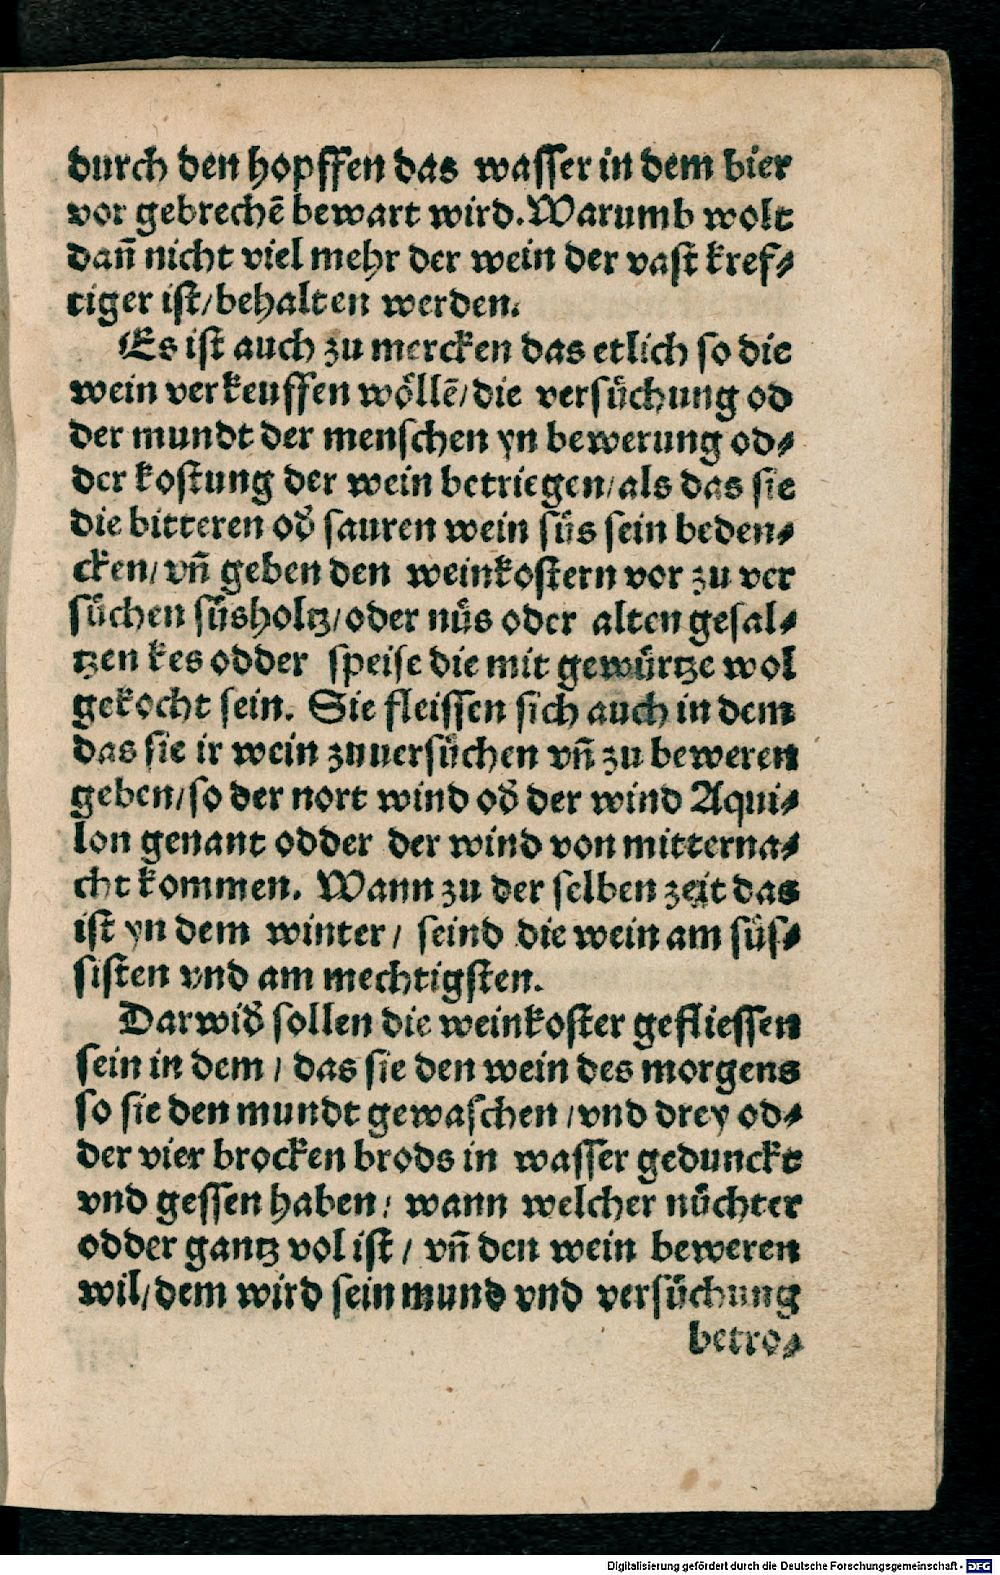 durch den hopffen das wasser in dem bier
vor gebrechē bewart wird. Warumb wolt
dañ nicht viel mehr der wein der vast kref⸗
tiger ist/behalten werden.
Es ist auch zu mercken das etlich so die
wein verkeuffen woͤllē/die versuͤchung od
der mundt der menschen yn bewerung od⸗
der kostung der wein betriegen/als das sie
die bitteren od̕ sauren wein suͤs sein beden⸗
cken/vñ geben den weinkostern vor zu ver
suͤchen suͤsholtz/oder nuͤs oder alten gesal⸗
tzen kes odder speise die mit gewuͤrtze wol
gekocht sein. Sie fleissen sich auch in dem
das sie ir wein zuuersuͤchen vñ zu beweren
geben/so der nort wind od̕ der wind Aqui⸗
lon genant odder der wind von mitterna⸗
cht kommen. Wann zu der selben zeit das
ist yn dem winter/ seind die wein am suͤs⸗
sisten vnd am mechtigsten.
Darwid̕ sollen die weinkoster gefliessen
sein in dem/ das sie den wein des morgens
so sie den mundt gewaschen/vnd drey od⸗
der vier brocken brods in wasser gedunckt
vnd gessen haben/ wann welcher nuͤchter
odder gantz vol ist/ vñ den wein beweren
wil/dem wird sein mund vnd versuͤchung
betro⸗
Digitalisierung gefördert durch die Deutsche Forschungsgemeinschaft - DFG